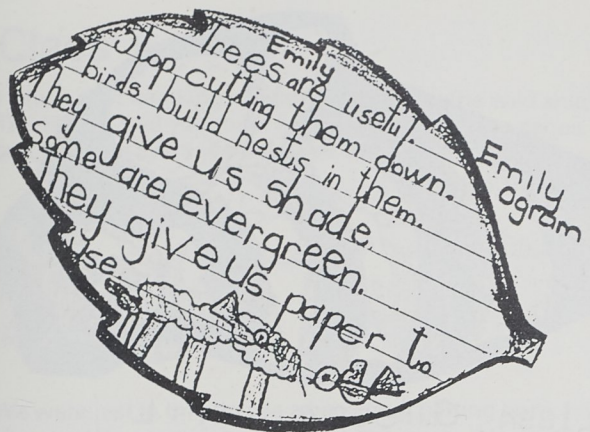 Emily
Trees are useful.
Stop cutting them down.
birds build nests in them.
They give us shade
Some are evergreen.
They give us paper to
use
Emily
ogram